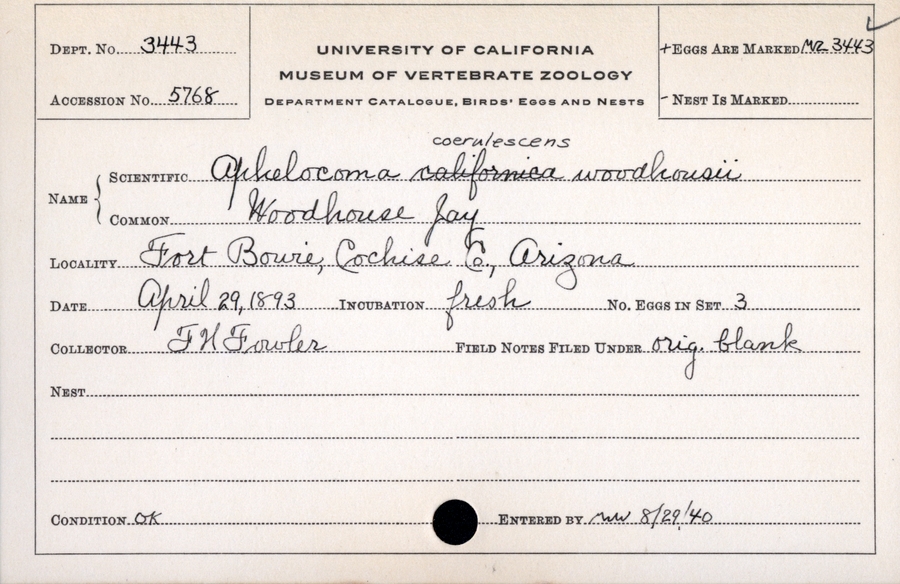 Dept. No. 3443
Accession No. 5768
UNIVERSITY OF CALIFORNIA
MUSEUM OF VERTEBRATE ZOOLOGY
Department Catalogue, Birds' Eggs and Nests
+Eggs Are Marked MVZ 3443
- Nest Is Marked
coerulescens
Name { Scientific Aphelocoma californica woodhousii
Common Woodhouse Jay
Locality Fort Bowie, Cochise Co., Arizona
Date April 29, 1893 Incubation fresh No. Eggs in Set 3
Collector F H Fowler Field Notes Filed Under orig. blank
Nest
Condition OK Entered by 8/29/40